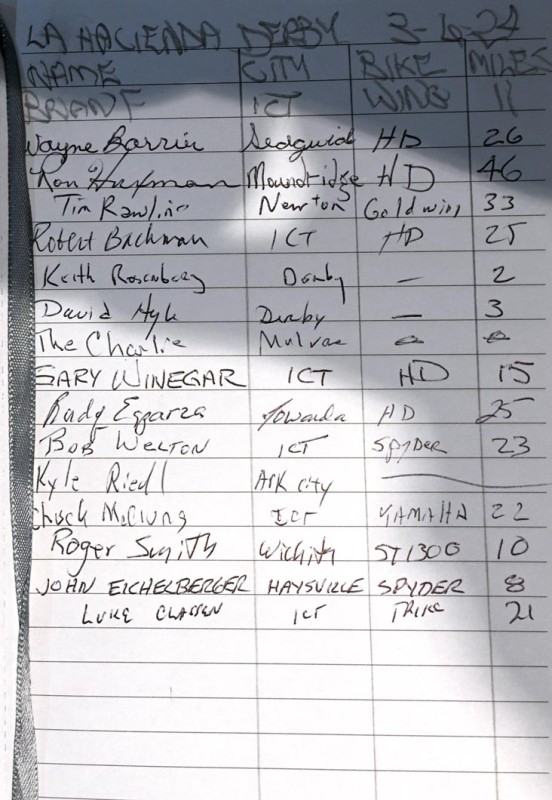 LA HACIENDA DERBY 3-6-24
NAME CITY BIKE MILES
BRIANT ICT WING 11
Wayne Barrier Sedgwick HD 26
Ron Hufman Moundridge HD 46
Tim Rawline Newton Goldwing 33
Robert Bachman ICT HD 25
Keith Rosenberg Derby — 2
David Hyle Derby — 3
The Charlie Mulvae
GARY WINEGAR ICT HD 15
Rudy Esparza Towanda HD 25
BOB WELTON ICT SPYDER 23
Kyle Riedl Ark city —
Chuck McClung ICT YAMAHA 22
Roger Smith Wichita ST1300 10
JOHN EICHELBERGER HAYSVILLE SPYDER 8
LUKE CLASSEN ICT TRIKE 21